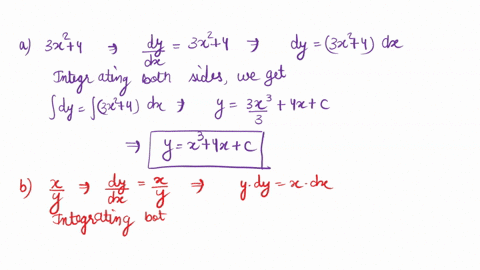 a) 3x²+4 ⇒ dy/dx = 3x²+4 ⇒ dy = (3x²+4) dx
Integrating both sides, we get
∫dy = ∫(3x²+4) dx ⇒ y = 3x³/3 + 4x + c
⇒ y = x³+4x+c
b) x/y ⇒ dy/dx = x/y ⇒ y·dy = x·dx
Integrating bot